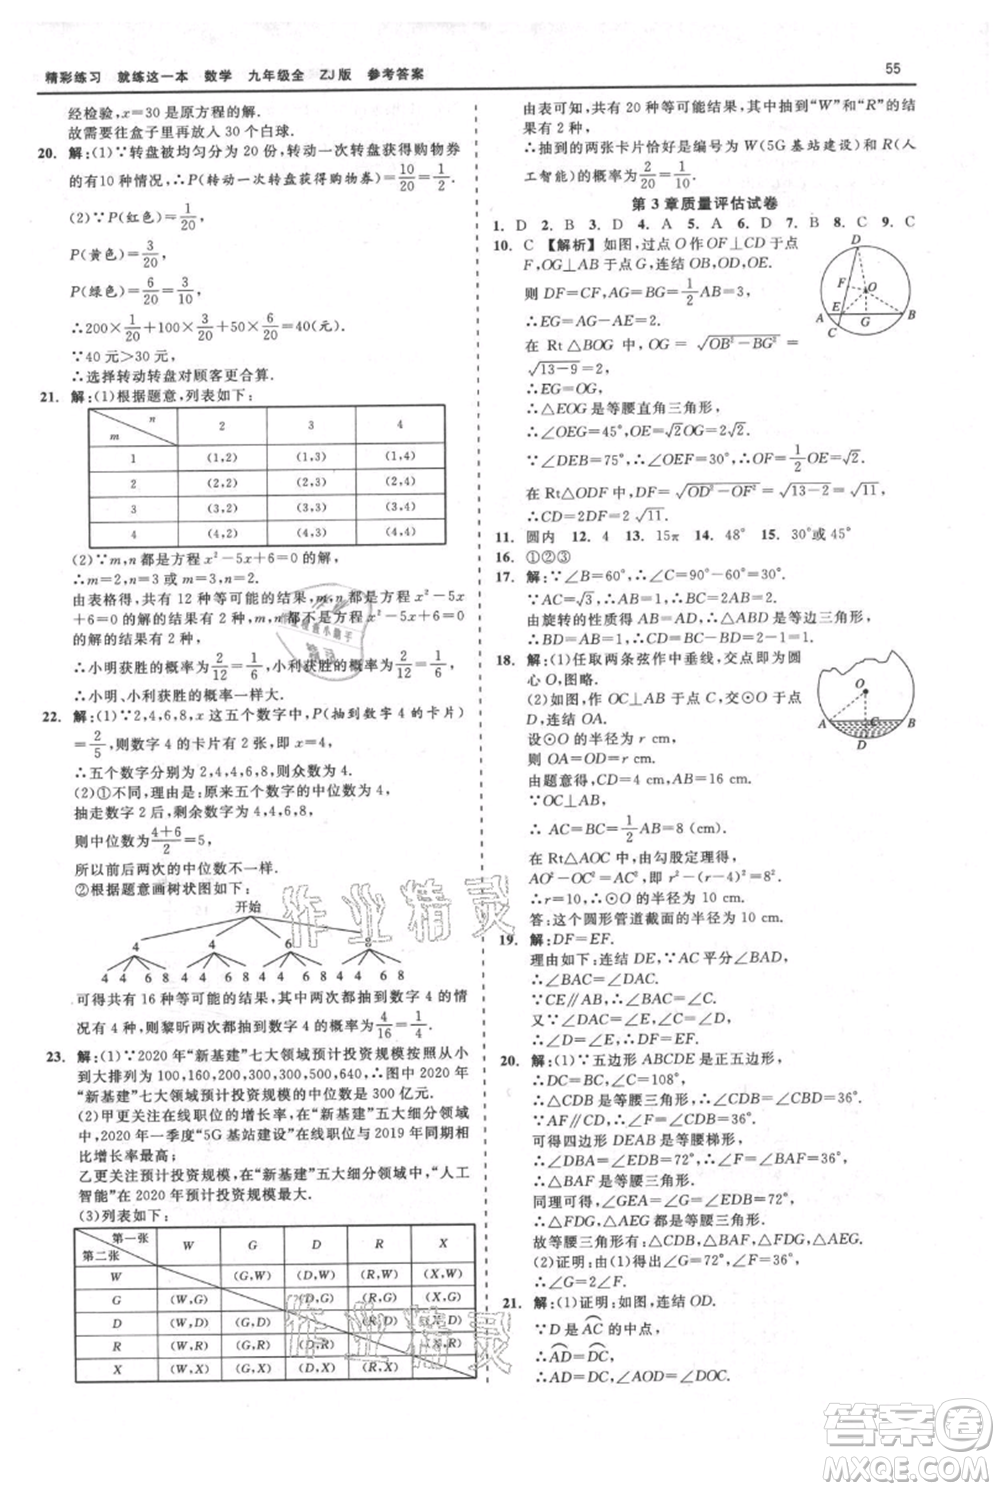 精彩练习 就练这一本 数学 九年级全 ZJ版 参考答案
55
经检验,x=30是原方程的解.
故需要往盒子里再放入30个白球.
20. 解:(1)∵转盘被均匀分为20份,转动一次转盘获得购物券
的有10种情况,∴P(转动一次转盘获得购物券)=10/20=1/2.
(2)∵P(红色)=1/20,
P(黄色)=3/20,
P(绿色)=6/20,
∴200×1/20+100×3/20+50×6/20=40(元).
∵40元>30元,
∴选择转动转盘对顾客更合算.
21. 解:(1)根据题意,列表如下:
m n 2 3 4
1 (1,2) (1,3) (1,4)
3 (3,2) (3,3) (3,4)
4 (4,2) (4,3) (4,4)
(2)∵m,n都是方程x²-5x+6=0的解,
∴m=2,n=3或m=3,n=2.
由表格得,共有12种等可能的结果,m,n都是方程x²-5x
+6=0的解的结果有2种,m,n都不是方程x²-5x+6=0
的解的结果有2种,
∴小明获胜的概率为2/12=1/6,小利获胜的概率为2/12=1/6,
∴小明、小利获胜的概率一样大.
22. 解:(1)∵2,4,6,8,x这五个数字中,P(抽到数字4的卡片)
=2/5,则数字4的卡片有2张,即x=4,
∴五个数字分别为2,4,4,6,8,则众数为4.
(2)①不同,理由是:原来五个数字的中位数为4,
抽走数字2后,剩余数字为4,4,6,8,
则中位数为4+6/2=5,
所以前后两次的中位数不一样.
②根据题意画树状图如下:
开始
4 4 6 8
4 4 6 8 4 4 6 8 4 4 6 8 4 4 6 8
可得共有16种等可能的结果,其中两次都抽到数字4的情
况有4种,则黎昕两次都抽到数字4的概率为4/16=1/4.
23. 解:(1)∵2020年“新基建”七大领域预计投资规模按照从小
到大排列为100,160,200,300,300,500,640,∴图中2020年
“新基建”七大领域预计投资规模的中位数是300亿元.
(2)甲更关注在线职位的增长率,在“新基建”五大细分领域
中,2020年一季度“5G基站建设”在线职位与2019年同期相
比增长率最高;
乙更关注预计投资规模,在“新基建”五大细分领域中,“人工
智能”在2020年预计投资规模最大.
(3)列表如下:
第一张 第二张 W G D R X
W (G,W) (D,W) (R,W) (X,W)
G (W,G) (D,G) (R,G) (X,G)
D (W,D) (G,D) (R,D) (X,D)
R (W,R) (G,R) (D,R) (X,R)
X (W,X) (G,X) (D,X) (R,X)
由表可知,共有20种等可能结果,其中抽到“W”和“R”的结
果有2种,
∴抽到的两张卡片恰好是编号为W(5G基站建设)和R(人
工智能)的概率为2/20=1/10.
第3章质量评估试卷
1. D 2. B 3. D 4. A 5. A 6. D 7. B 8. C 9. C
10. C 【解析】如图,过点O作OF⊥CD于点
F,OG⊥AB于点G,连结OB,OD,OE.
则DF=CF,AG=BG=1/2AB=3,
∴EG=AG-AE=2.
在Rt△BOG中,OG=√OB²-BG²=
√13-9=2,
∴EG=OG,
∴△EOG是等腰直角三角形,
∴∠OEG=45°,OE=√2OG=2√2.
∵∠DEB=75°,∴∠OEF=30°,∴OF=1/2OE=√2.
在Rt△ODF中,DF=√OD²-OF²=√13-2=√11,
∴CD=2DF=2√11.
D
F
O
E
A
G
B
C
11. 圆内 12. 4 13. 15π 14. 48° 15. 30°或45°
16. ①②③
17. 解:∵∠B=60°,∴∠C=90°-60°=30°.
∵AC=√3,∴AB=1,∴BC=2AB=2.
由旋转的性质得AB=AD,∴△ADB是等边三角形,
∴BD=AB=1,∴CD=BC-BD=2-1=1.
18. 解:(1)任取两条弦作中垂线,交点即为圆
心O,图略.
(2)如图,作OC⊥AB于点C,交⊙O于点
D,连结OA.
设⊙O的半径为r cm,
则OA=OD=r cm.
由题意得,CD=4 cm,AB=16 cm.
∵OC⊥AB,
∴AC=BC=1/2AB=8(cm).
在Rt△AOC中,由勾股定理得,
AO²-OC²=AC²,即r²-(r-4)²=8²,
∴r=10,∴OA=10 cm.
答:这个圆形管道截面的半径为10 cm.
O
A
C
B
D
19. 解:DF=EF.
理由如下:连结DE,∵AC平分∠BAD,
∴∠BAC=∠DAC=1/2∠BAD.
∵CE∥AB,∴∠BAC=∠ACE.
又∵∠ADE=∠ACE,∴∠DAC=∠ADE,
∴DF=AF.同理可得,AF=EF,∴DF=EF.
20. 解:(1)∵五边形ABCDE是正五边形,
∴∠C=∠CDE=108°,CD=CB,
∴∠CDB=36°,∴∠EDB=72°.
∵AF∥CD,∴∠F=∠CDB=36°.
可得四边形DEAB是等腰梯形,
∴∠EAB=∠AED=108°,∴∠FAE=36°.
同理可得,∠GEA=∠G=72°,
∴△FDG、△AEG都是等腰三角形,
故等腰三角形有:△CDB,△FDG,△AEG.
(2)证明:由(1)得∠G=72°,∠GEA=72°,
∴∠G=∠GEA,∴AG=AE.
21. 解:(1)证明:如图,连结OD.
∵D是AC的中点,
∴AD=DC,
∴∠AOD=∠DOC,∴∠AOC=2∠AOD.
作业精灵
作业精灵
答案圈
MXQE.COM